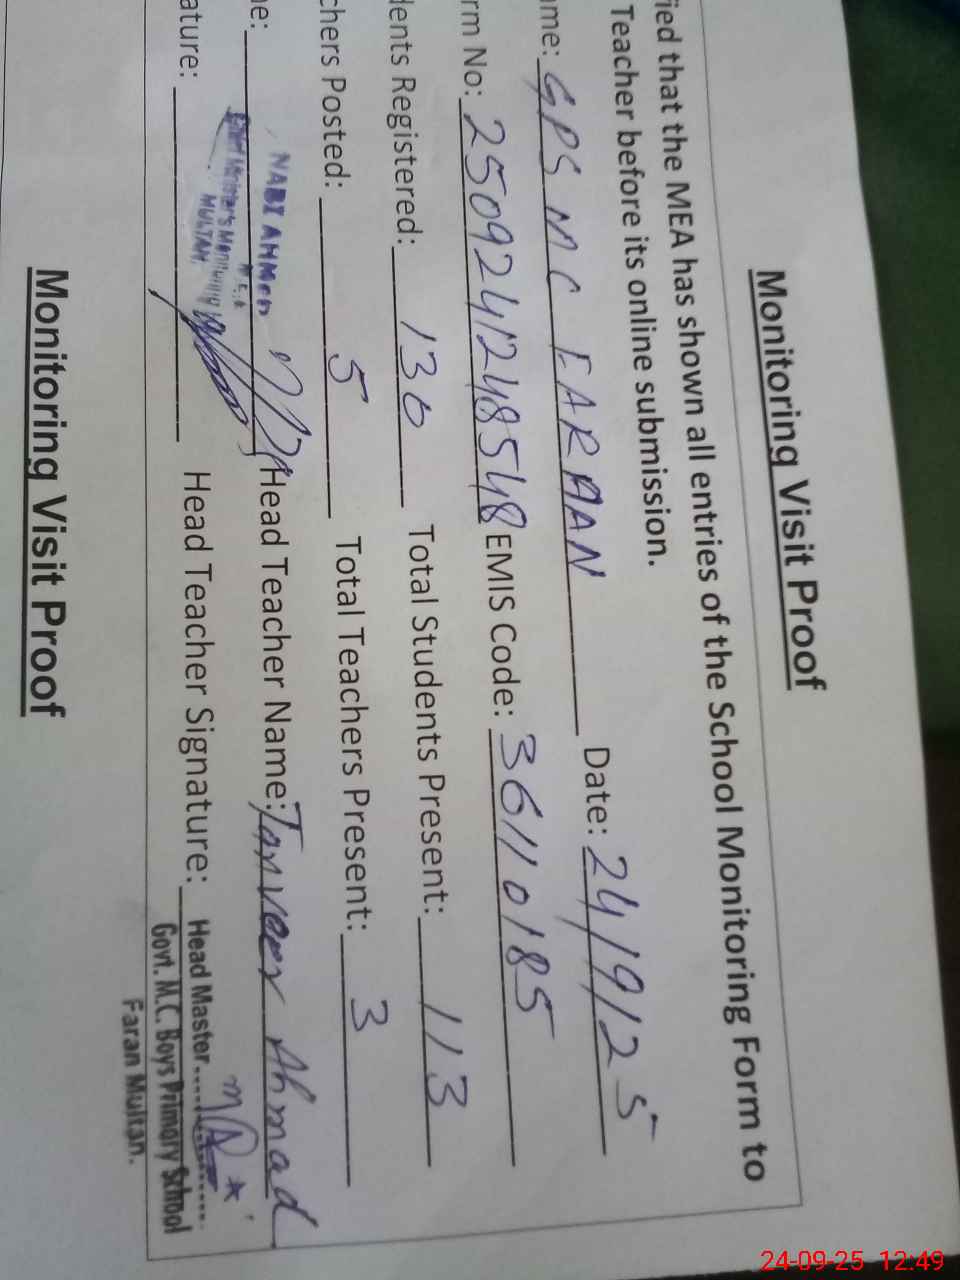 Monitoring Visit Proof
fied that the MEA has shown all entries of the School Monitoring Form to
Teacher before its online submission.
ame: GPS MC FARAAN Date: 24/9/25
rm No: 2509241248548 EMIS Code: 36110185
dents Registered: 130 Total Students Present: 113
chers Posted: 5 Total Teachers Present: 3
me: NABI AHMED Head Teacher Name: Tanveer Ahmad
M.E.A
Chief Minister's Monitoring
MULTAN.
ature: Head Teacher Signature:
Head Master
Govt. M.C. Boys Primary School
Faran Multan.
Monitoring Visit Proof
24-09-25 12:49